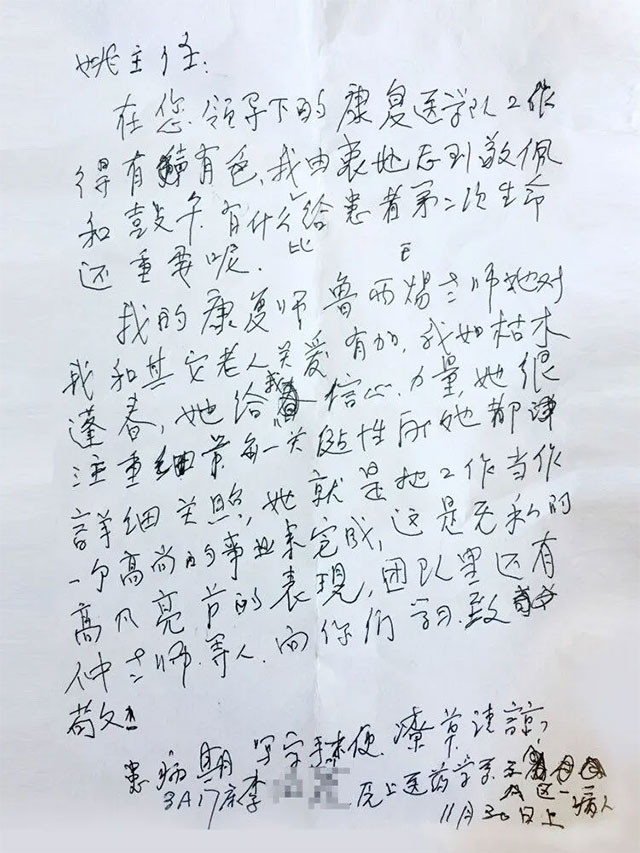 姚主任:
在您领导下的康复医学队工作
得有声有色,我由衷地感到敬佩
和鼓午.有什么比给患者第二次生命
还重要呢.
我的康复师鲁西炀老师她对
我和其它老人关爱有加,我如枯木
蓬春,她给我信心.力量,她很
注重细节每一关键性所她都
詳细关照,她就是把工作当作
一个高尚的事业来完成,这是无私的
高风亮节的表現,团队里还有
仲老师.等人.向你们学习.致
敬!
患病期写字手不便.潦草请諒,
3A17床李 医药学系
区一病人
11月30日上